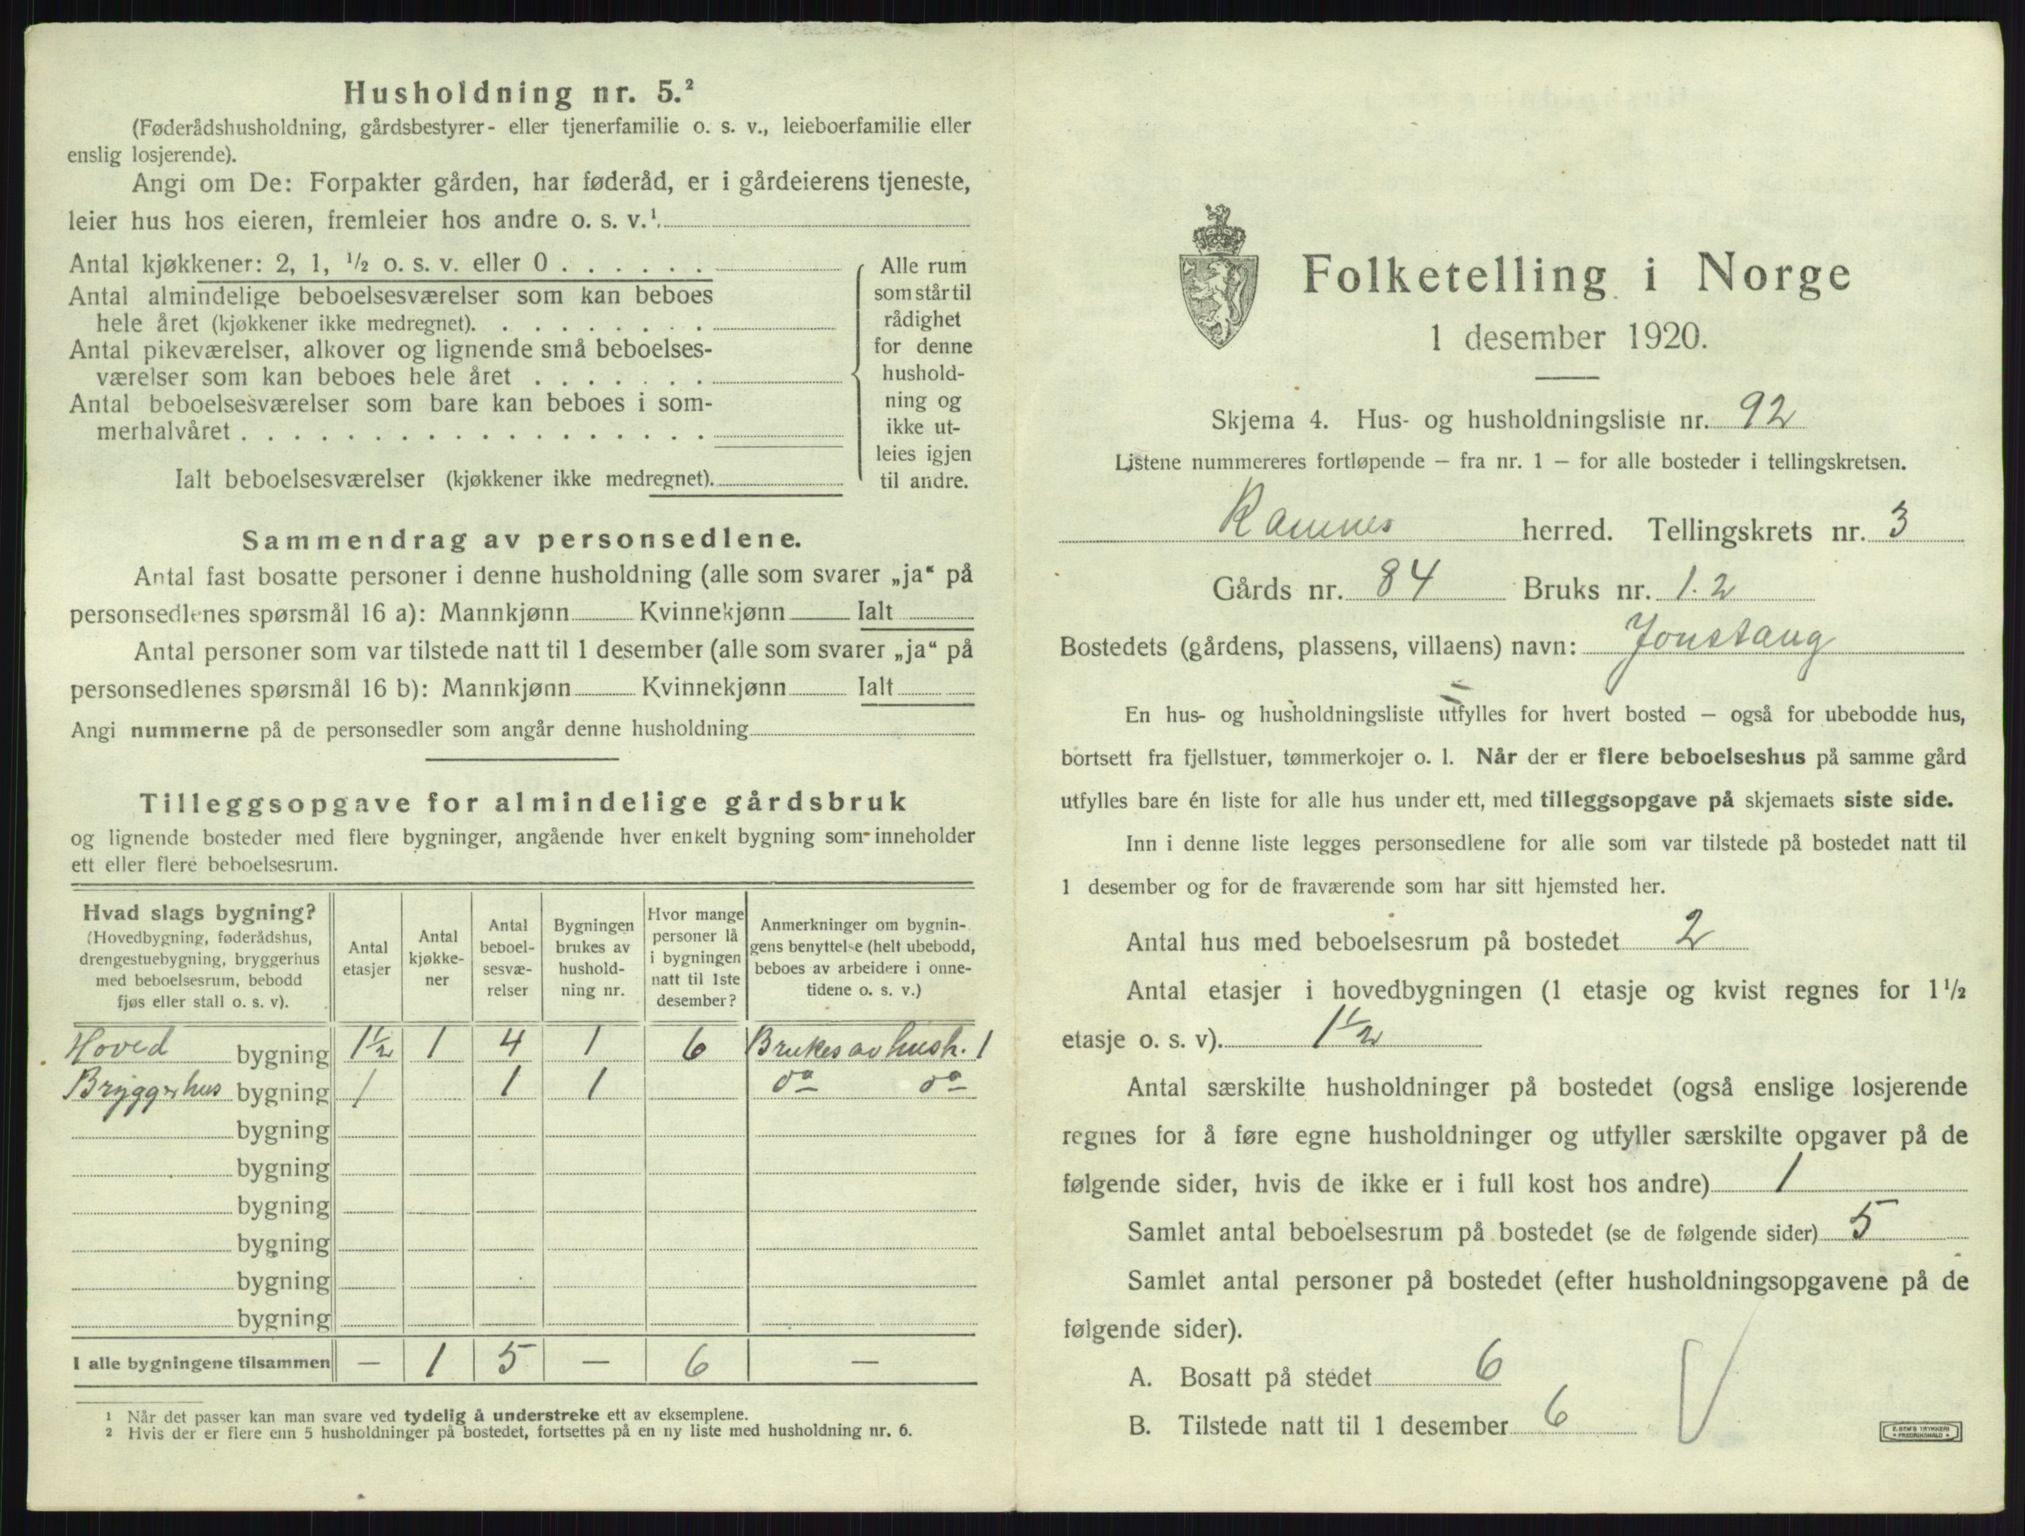 Husholdning nr. 5.²
(Føderådshusholdning, gårdsbestyrer- eller tjenerfamilie o. s. v., leieboerfamilie eller
enslig losjerende).
Angi om De: Forpakter gården, har føderåd, er i gårdeierens tjeneste,
leier hus hos eieren, fremleier hos andre o. s. v.¹.
Antal kjøkkener: 2, 1, ½ o. s. v. eller 0 . . . . . .
Antal almindelige beboelsesværelser som kan beboes
hele året (kjøkkener ikke medregnet). . . . . . . . .
Antal pikeværelser, alkover og lignende små beboelses-
værelser som kan beboes hele året . . . . . . .
Antal beboelsesværelser som bare kan beboes i som-
merhalvåret . . . . . . . . . . . . . . . . . .
Ialt beboelsesværelser (kjøkkener ikke medregnet).
Alle rum
som står til
rådighet
for denne
hushold-
ning og
ikke ut-
leies igjen
til andre.
Sammendrag av personsedlene.
Antal fast bosatte personer i denne husholdning (alle som svarer „ja“ på
personsedlenes spørsmål 16 a): Mannkjønn Kvinnekjønn Ialt
Antal personer som var tilstede natt til 1 desember (alle som svarer „ja“ på
personsedlenes spørsmål 16 b): Mannkjønn Kvinnekjønn Ialt
Angi nummerne på de personsedler som angår denne husholdning
Tilleggsopgave for almindelige gårdsbruk
og lignende bosteder med flere bygninger, angående hver enkelt bygning som inneholder
ett eller flere beboelsesrum.
Hvad slags bygning?
(Hovedbygning, føderådshus,
drengestuebygning, bryggerhus
med beboelsesrum, bebodd
fjøs eller stall o. s. v).
Antal
etasjer
Antal
kjøkke-
ner
Antal
beboel-
sesvæ-
relser
Bygningen
brukes av
hushold-
ning nr.
Hvor mange
personer lå
i bygningen
natt til 1ste
desember?
Anmerkninger om bygnin-
gens benyttelse (helt ubebodd,
beboes av arbeidere i onne-
tidene o. s. v.)
Hoved bygning 1½ 1 4 1 6 Brukes av hush. 1
Bryggerhus bygning 1 1 1 do do
bygning
bygning
bygning
bygning
bygning
bygning
I alle bygningene tilsammen — 1 5 — 6 —
1 Når det passer kan man svare ved tydelig å understreke ett av eksemplene.
2 Hvis der er flere enn 5 husholdninger på bostedet, fortsettes på en ny liste med husholdning nr. 6.
Folketelling i Norge
1 desember 1920.
Skjema 4. Hus- og husholdningsliste nr. 92
Listene nummereres fortløpende — fra nr. 1 — for alle bosteder i tellingskretsen.
Ramnes herred. Tellingskrets nr. 3
Gårds nr. 84 Bruks nr. 1.2
Bostedets (gårdens, plassens, villaens) navn: Jonstang
En hus- og husholdningsliste utfylles for hvert bosted — også for ubebodde hus,
bortsett fra fjellstuer, tømmerkojer o. l. Når der er flere beboelseshus på samme gård
utfylles bare én liste for alle hus under ett, med tilleggsopgave på skjemaets siste side.
Inn i denne liste legges personsedlene for alle som var tilstede på bostedet natt til
1 desember og for de fraværende som har sitt hjemsted her.
Antal hus med beboelsesrum på bostedet 2
Antal etasjer i hovedbygningen (1 etasje og kvist regnes for 1½
etasje o. s. v). 1½
Antal særskilte husholdninger på bostedet (også enslige losjerende
regnes for å føre egne husholdninger og utfyller særskilte opgaver på de
følgende sider, hvis de ikke er i full kost hos andre) 1
Samlet antal beboelsesrum på bostedet (se de følgende sider) 5
Samlet antal personer på bostedet (efter husholdningsopgavene på de
følgende sider).
A. Bosatt på stedet 6
B. Tilstede natt til 1 desember 6